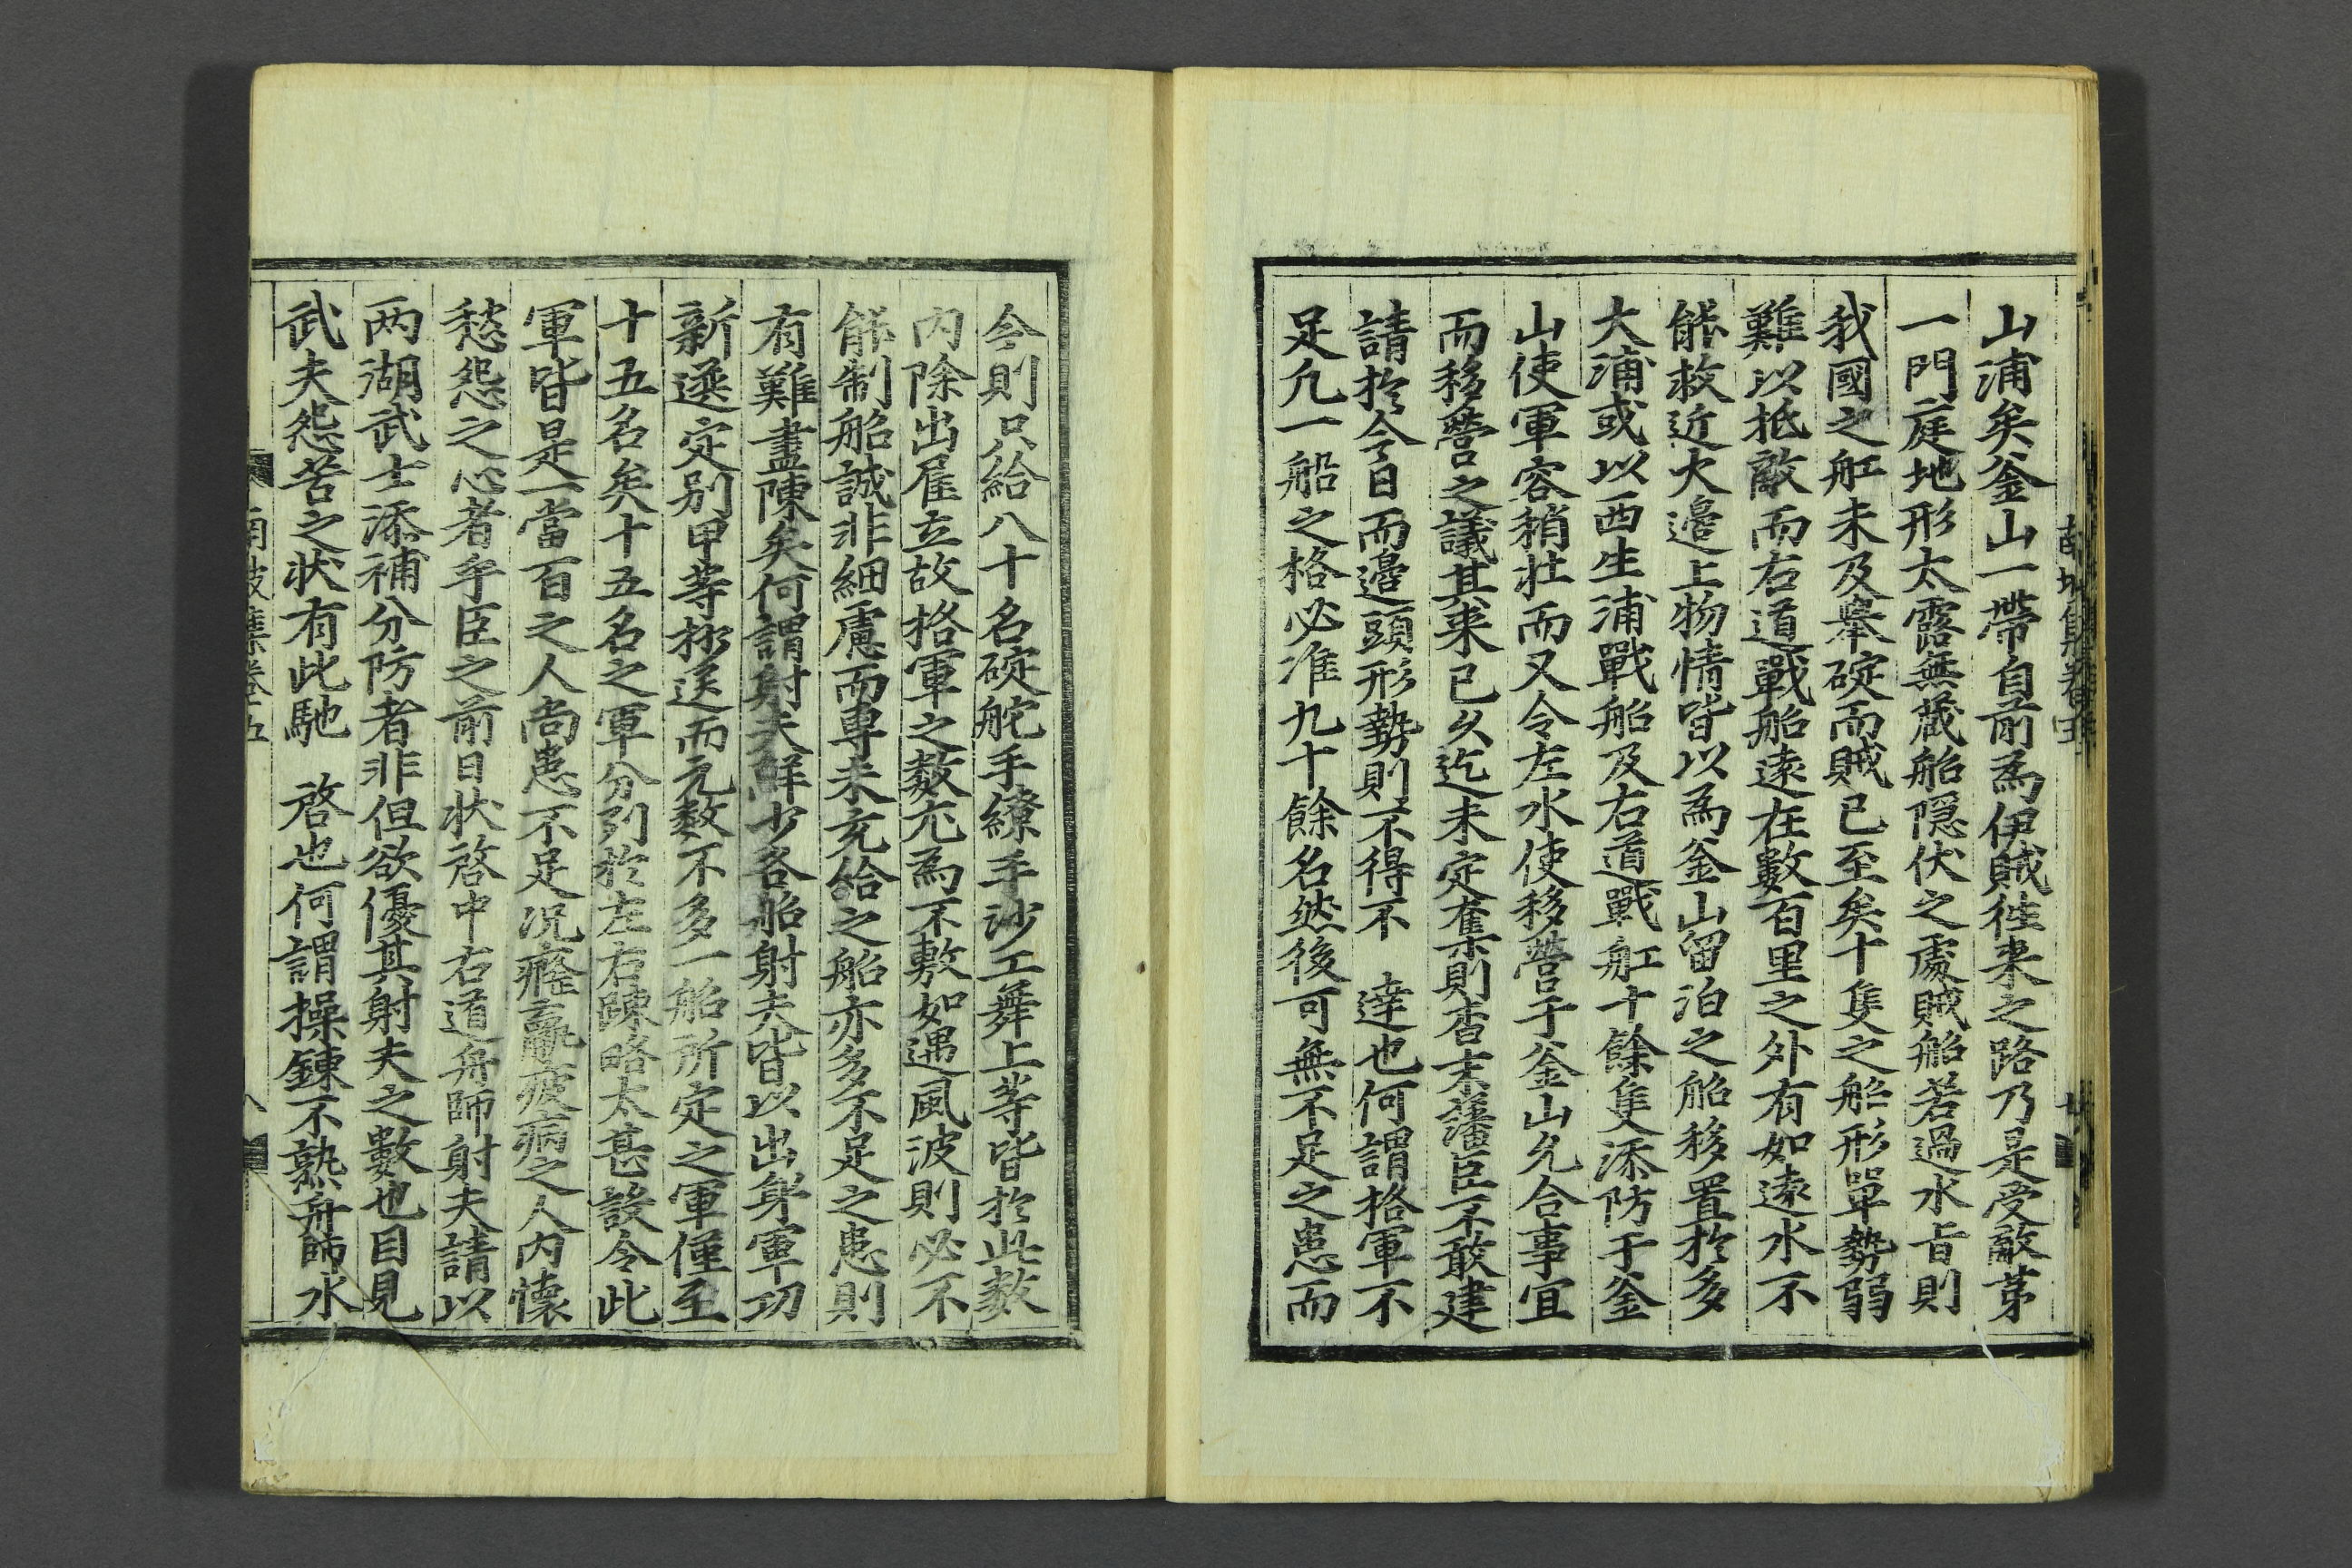 山浦矣釜山一帶自前爲伊賊徃来之路乃是受敵苐
一門庭地形太露無藏船隠伏之處賊船若過水旨則
我國之舡未及擧碇而賊已至矣十隻之船形單勢弱
難以抵敵而右道戰船逺在數百里之外有如逺水不
能救近火邉上物情皆以爲釜山留泊之船移置於多
大浦或以西生浦戰船及右道戰舡十餘隻添防于釜
山使軍容稍壮而又令左水使移營于釜山允合事宜
而移營之議其来已久迄未定奪則杳末藩臣不敢建
請扵今日而邉頭形勢則不得不 達也何謂格軍不
足凢一船之格必准九十餘名然後可無不足之患而
今則只給八十名碇舵手繚手沙工舞上等皆扵此数
内除出雇立故格軍之数尤爲不敷如遇風波則必不
能制船誠非細慮而專未充給之船亦多不足之患則
有難盡陳矣何謂射夫鮮少各船射夫皆以出身軍功
新選定别甲等抄送而元数不多一船所定之軍僅至
十五名矣十五名之軍分列扵左右踈略太甚設令此
軍皆是一當百之人尚患不足况癃羸疲病之人内懷
愁怨之心者乎臣之前日状啓中右道舟師射夫請以
两湖武士添補分防者非但欲優其射夫之數也目見
武夫怨苦之状有此馳 啓也何謂操鍊不熟舟師水
南坡集卷五